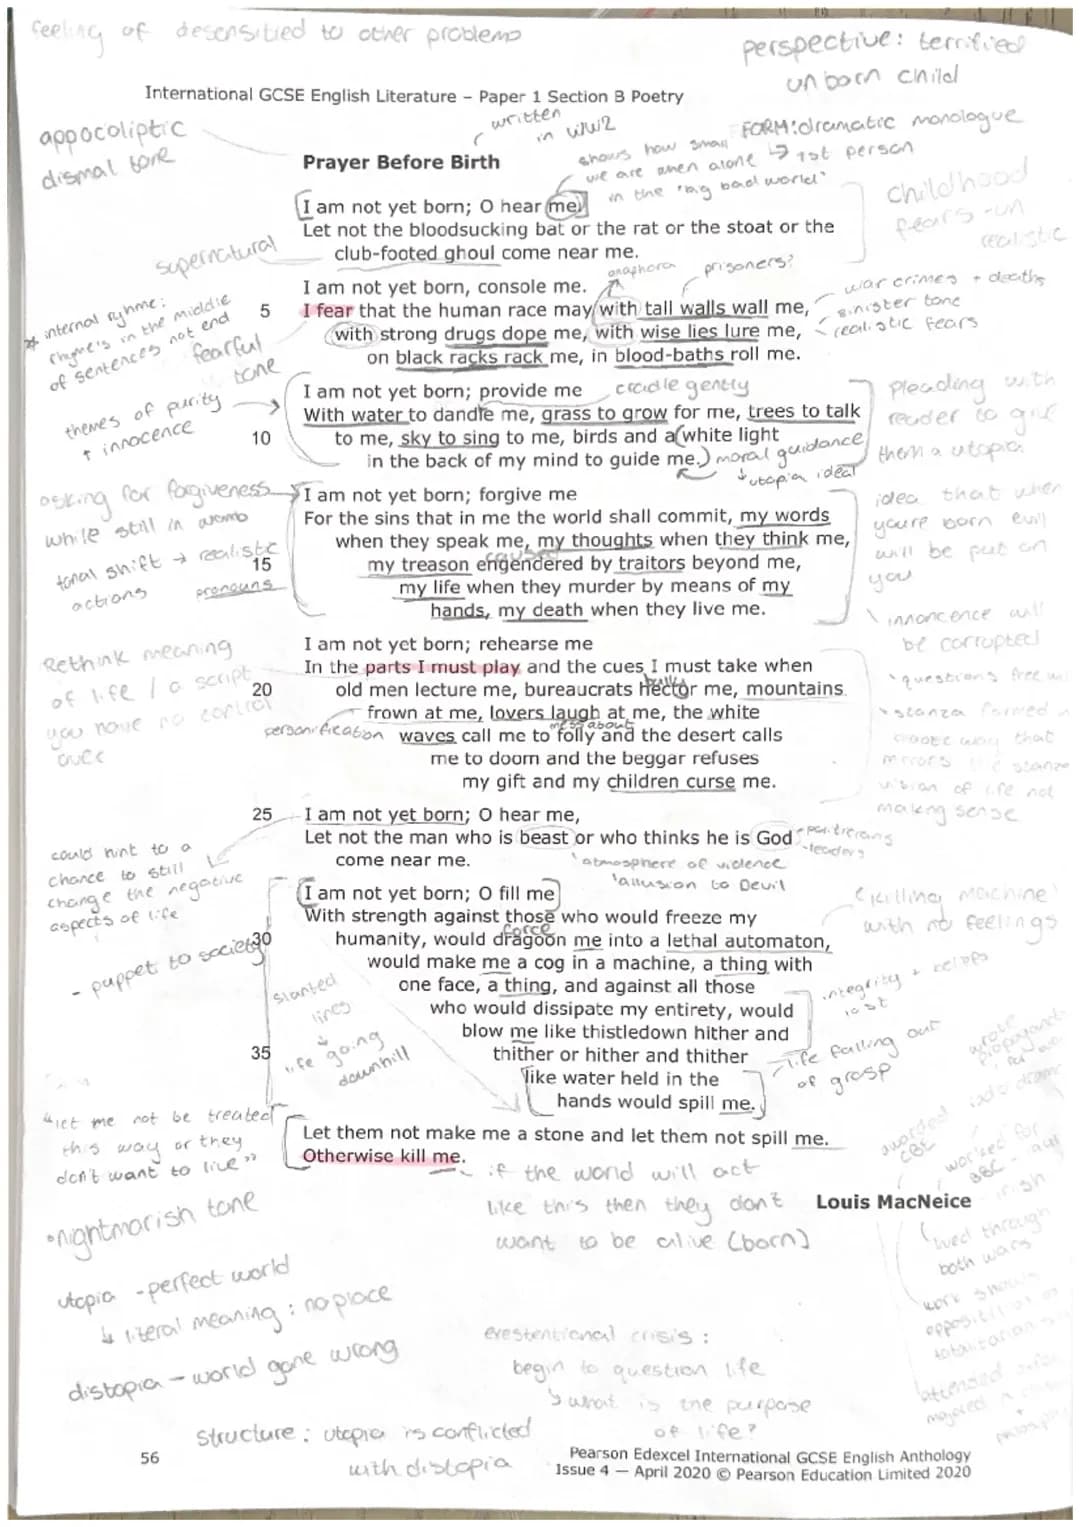 feeling of desensitied to other problems
perspective: terrified
unborn child
International GCSE English Literature – Paper 1 Section B Poetry
written
in WW2
FORM: dramatic monologue
↳ 1st person
appocoliptic
dismal tone
shows how small
we are when alone
in the "big bad world"
Prayer Before Birth
I am not yet born; O hear me.
Let not the bloodsucking bat or the rat or the stoat or the
club-footed ghoul come near me.
childhood
fears - un
realistic
supernatural
anaphora
prisoners?
I am not yet born, console me.
5 I fear that the human race may with tall walls wall me,
with strong drugs dope me, with wise lies lure me,
on black racks rack me, in blood-baths roll me.
war crimes + deaths
sinister tone
realistic fears
* internal ryhme:
rhyme's in the middle
of sentences not end
fearful
tone
I am not yet born; provide me
cradle gently
With water to dandle me, grass to grow for me, trees to talk
10 to me, sky to sing to me, birds and a white light
in the back of my mind to guide me.
moral guidance
↓ utopia ideal
themes of purity
+ innocence
pleading with
reader to give
them a utopia
I am not yet born; forgive me
For the sins that in me the world shall commit, my words
when they speak me, my thoughts when they think me,
caused
15 my treason engendered by traitors beyond me,
my life when they murder by means of my
hands, my death when they live me.
asking for forgiveness
while still in womb
tonal shift → realistic
actions
pronouns
idea that when
youre born evil
will be put on
you
innoncence will
be corrupted
I am not yet born; rehearse me
In the parts I must play and the cues I must take when
bully
20 old men lecture me, bureaucrats hector me, mountains
frown at me, lovers laugh at me, the white
personification
mess about
waves call me to folly and the desert calls
me to doom and the beggar refuses
my gift and my children curse me.
Rethink meaning
of life / a script
you have no control
over
questions free
stanza formed
way that
mirrors the stanza
vision of life not
making sense
25 I am not yet born; O hear me,
Let not the man who is beast or who thinks he is God
come near me.
-leaders
'atmosphere of violence
'allusion to Devil
could hint to a
chance to still
change the negative
aspects of life
I am not yet born; O fill me
With strength against those who would freeze my
force
30 humanity, would dragoon me into a lethal automaton,
would make me a cog in a machine, a thing with
one face, a thing, and against all those
who would dissipate my entirety, would
blow me like thistledown hither and
35 thither or hither and thither
like water held in the
hands would spill me.
- puppet to society
slanted
lines
↓
life going
downhill
'killing machine'
with no feelings
integrity + beliefs
lost
life falling out
of grasp
Let them not make me a stone and let them not spill me.
Otherwise kill me.
"let me not be treated
this way or they
don't want to live"
if the world will act
like this then they don't
want to be alive (born)
Louis MacNeice
wrote
awarded
CBE
worked for
BBC
irish
lived through
both wars
work shows
•nightmarish tone
utopia - perfect world
↳ literal meaning: no place
distopia - world gone wrong
exestentional crisis:
begin to question life
↳ what is the purpose
of life?
structure: utopia is conflicted
with distopia
56
Pearson Edexcel International GCSE English Anthology
Issue 4 — April 2020 © Pearson Education Limited 2020